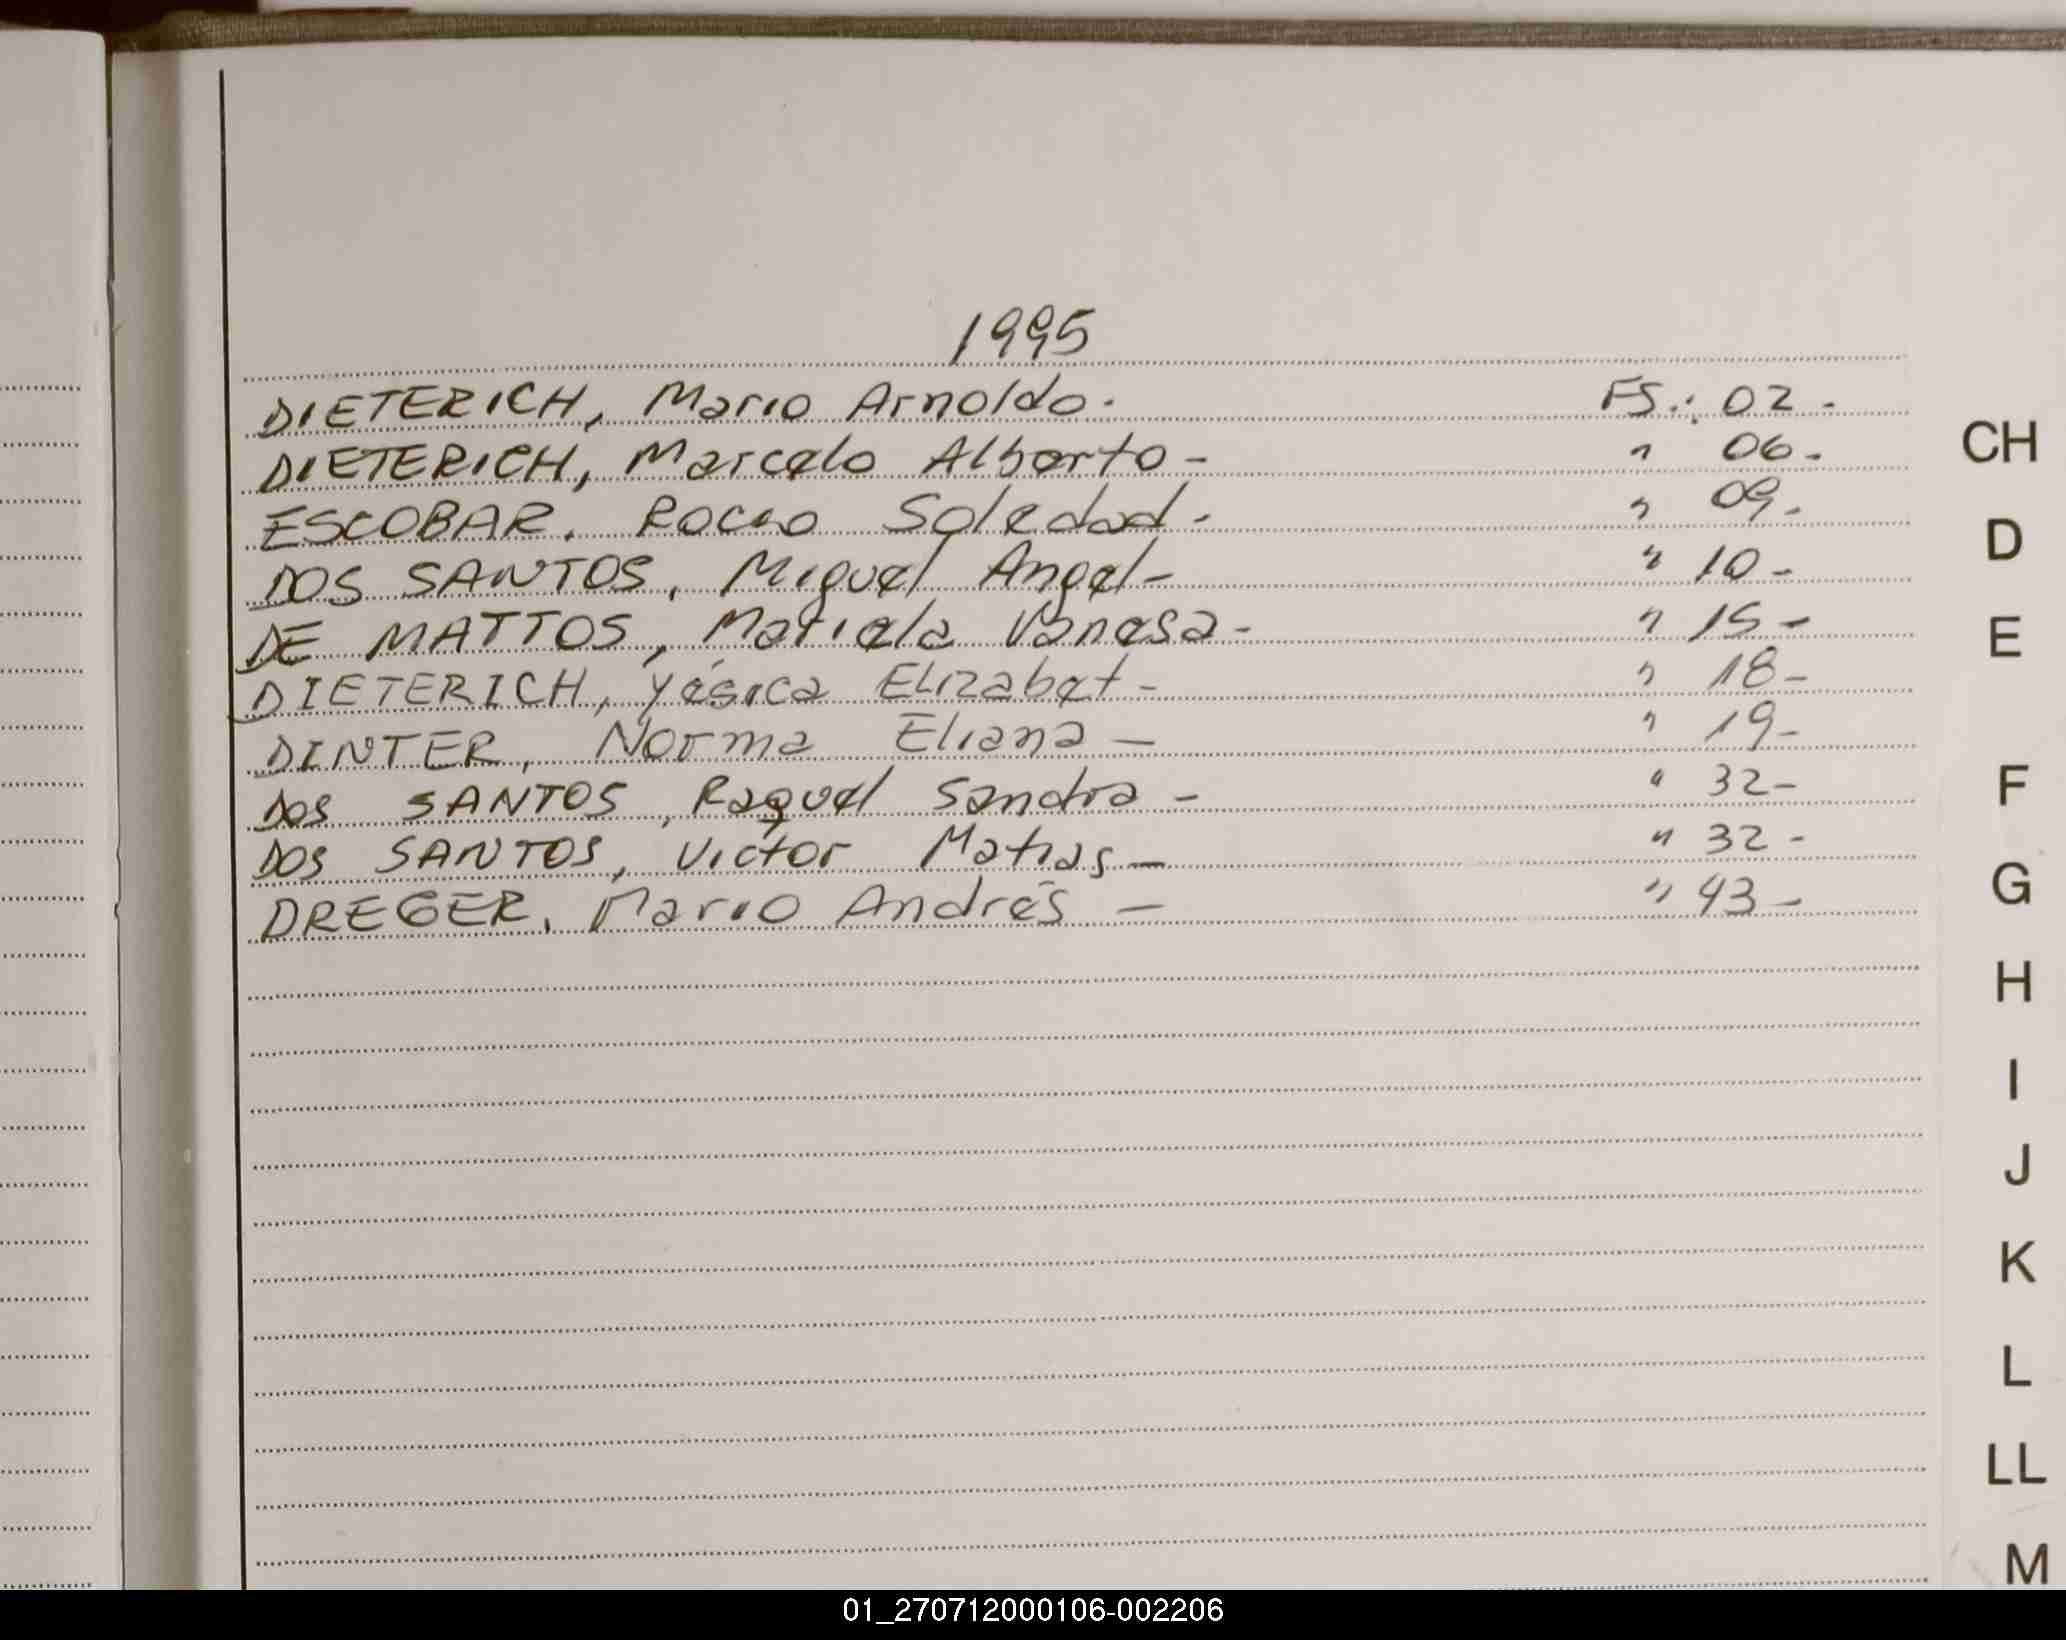 1995
DIETERICH, Mario Arnoldo. FS.: 02.
DIETERICH, Marcelo Alberto - " 06.
ESCOBAR. Rocio Soledad. " 09.
DOS SANTOS, Miguel Angel - " 10 -
DE MATTOS, Mariela Vanesa - " 15 -
DIETERICH, Yésica Elizabet - " 18 -
DINTER, Norma Eliana - " 19 -
DOS SANTOS, Raquel Sandra - " 32 -
DOS SANTOS, Victor Matias - " 32 -
DREGER, Mario Andrés - " 43 -
CH
D
E
F
G
H
I
J
K
L
LL
M
01_270712000106-002206